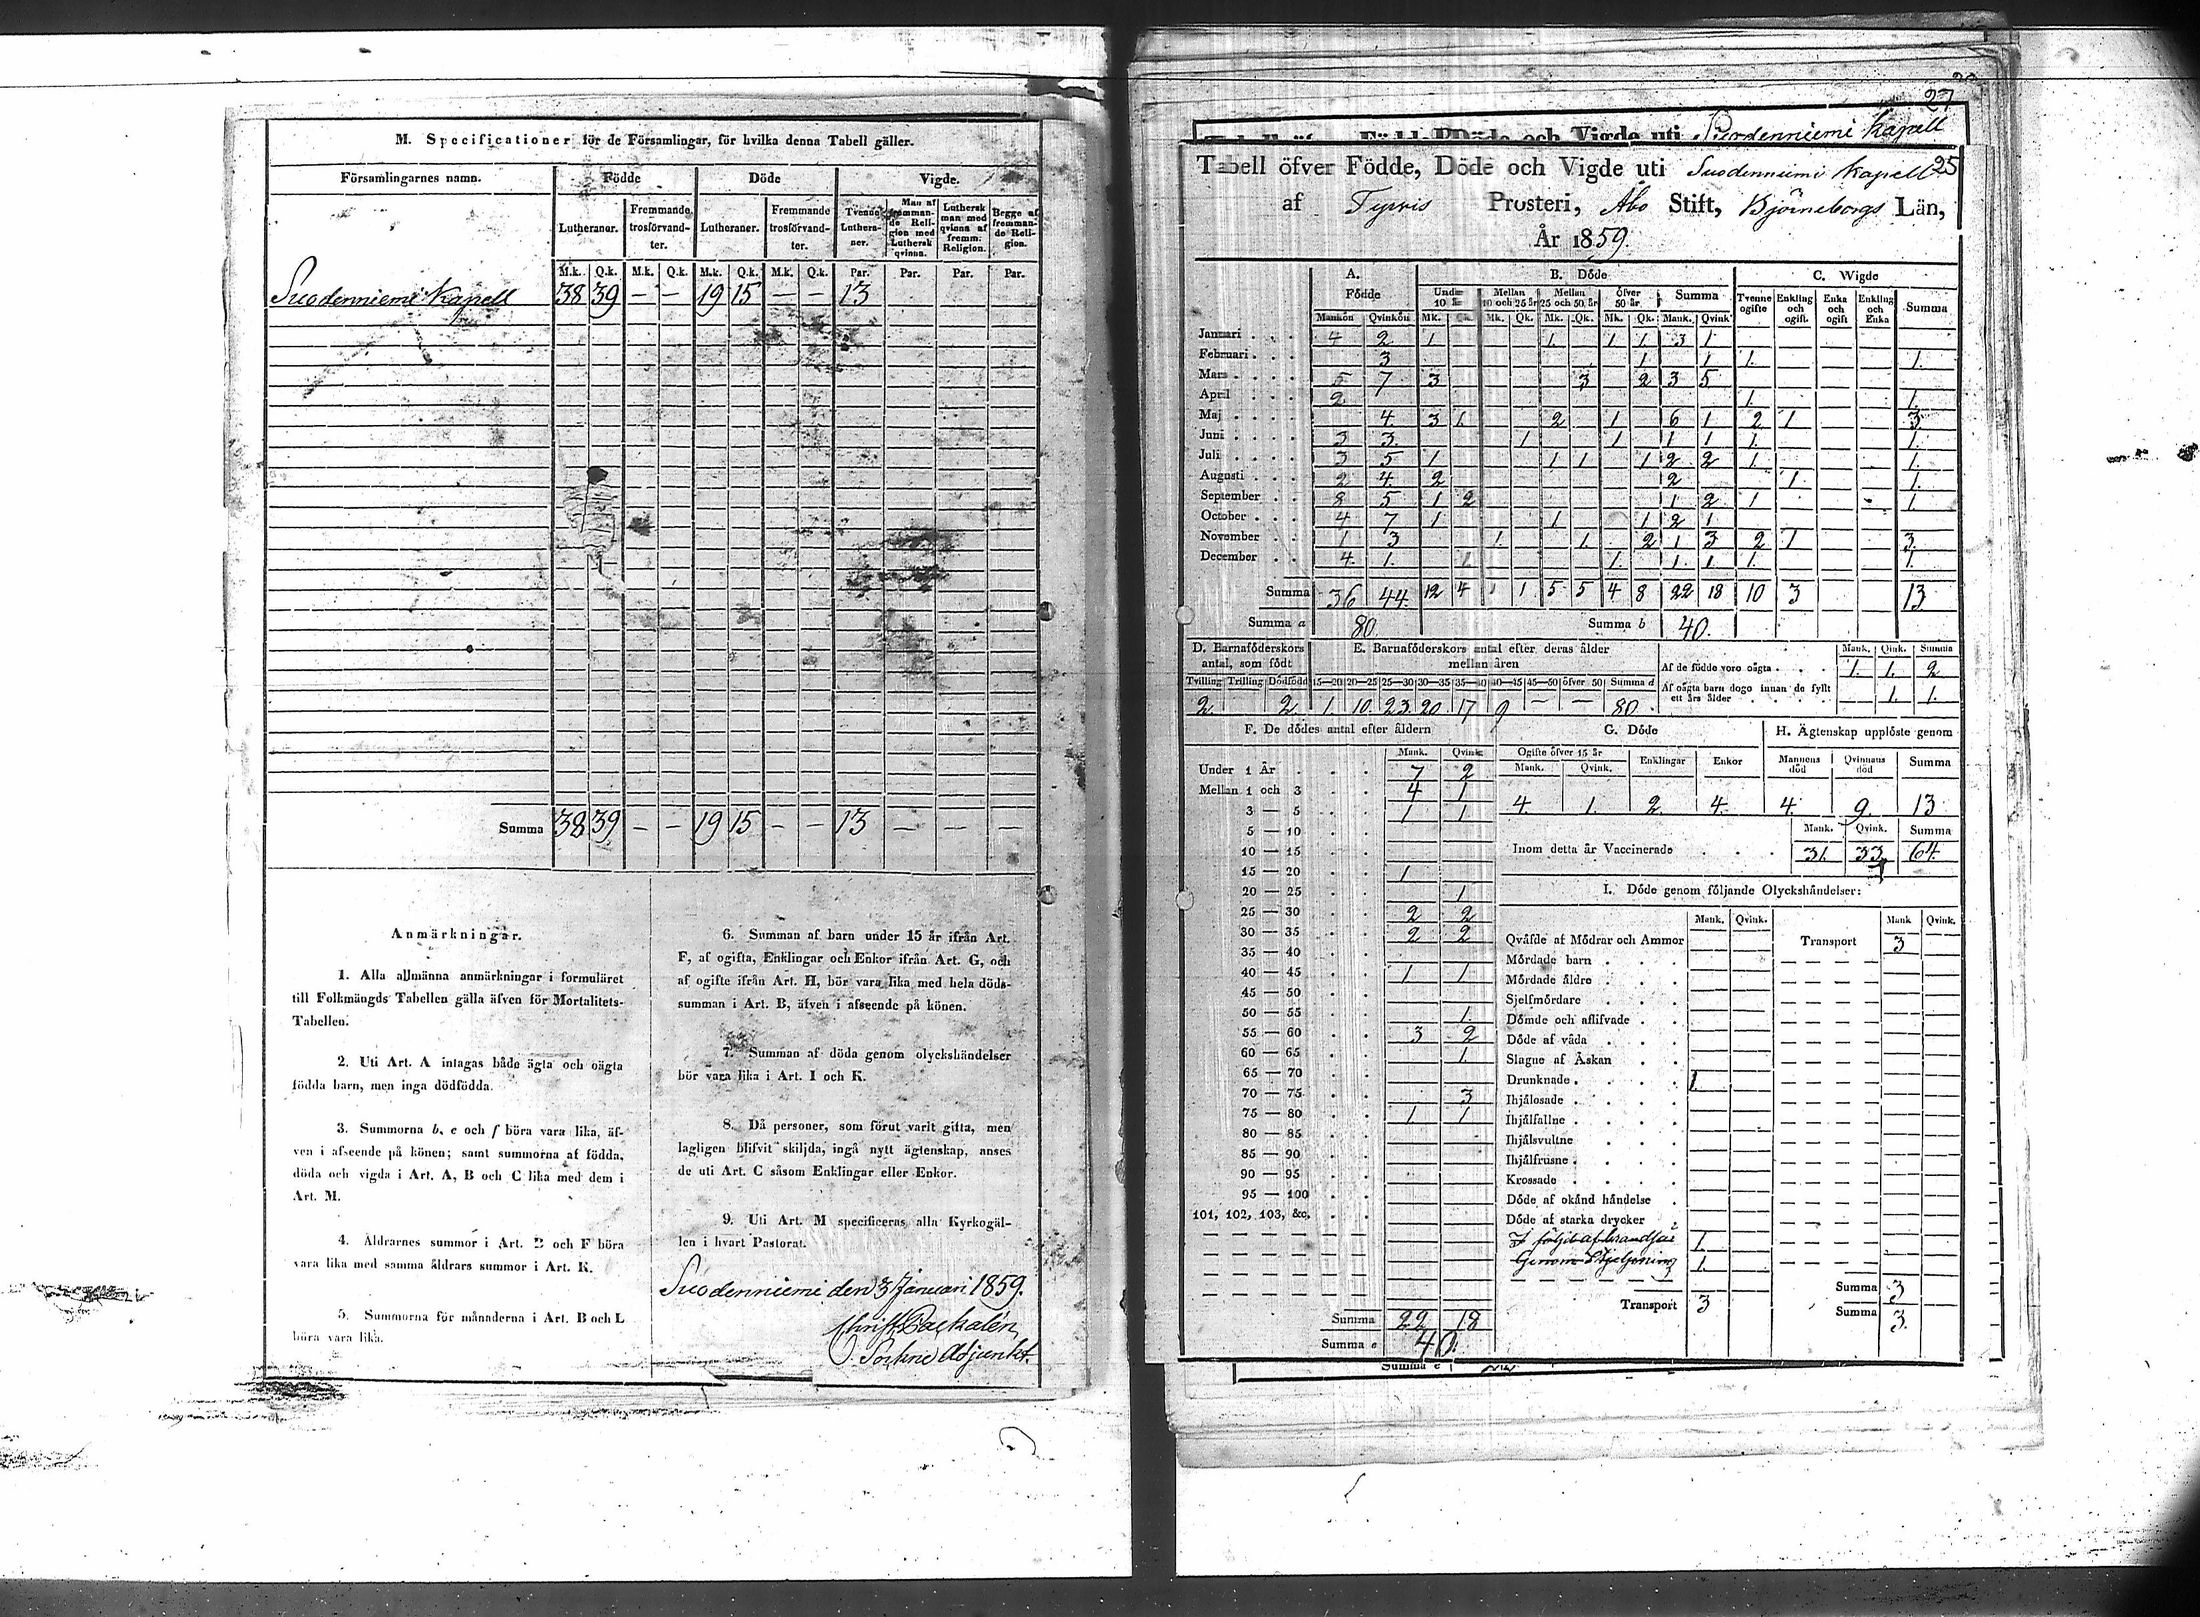 M. Specificationer för de Församlingar, för hvilka denna Tabell gäller.
Församlingarnes namn. Födde Döde Vigde.
Lutheraner. Fremmande trosförvandter. Lutheraner. Fremmande trosförvandter. Tvenne Lutheraner. Man af fremmande Religion med Luthersk qvinna. Luthersk man med qvinna af fremm. Religion. Begge af fremmande Religion.
M.k. Q.k. M.k. Q.k. M.k. Q.k. M.k. Q.k. Par. Par. Par. Par.
Suodenniemi Kapell 38 39 — — 19 15 — — 13
Summa 38 39 — — 19 15 — — 13 — — —
Anmärkningar.
1. Alla allmänna anmärkningar i formuläret
till Folkmängds Tabellen gälla äfven för Mortalitets-
Tabellen.
2. Uti Art. A intagas både ägta och oägta
födda barn, men inga dödfödda.
3. Summorna b, e och f böra vara lika, äf-
ven i afseende på könen; samt summorna af födda,
döda och vigda i Art. A, B och C lika med dem i
Art. M.
4. Åldrarnes summor i Art. B och F böra
vara lika med samma åldrars summor i Art. K.
5. Summorna för månaderna i Art. B och L
böra vara lika.
6. Summan af barn under 15 år ifrån Art.
F, af ogifta, Enklingar och Enkor ifrån Art. G, och
af ogifte ifrån Art. H, bör vara lika med hela döds-
summan i Art. B, äfven i afseende på könen.
7. Summan af döda genom olyckshändelser
bör vara lika i Art. I och K.
8. Då personer, som förut varit gifta, men
lagligen blifvit skiljda, ingå nytt ägtenskap, anses
de uti Art. C såsom Enklingar eller Enkor.
9. Uti Art. M specificeras alla Kyrkogäl-
len i hvart Pastorat.
Suodenniemi den 3 Januari 1859.
Sockne Adjunkt.
27
Suodenniemi Kapell
Tabell öfver Födde, Döde och Vigde uti Suodenniemi Kapell 25
af Tyrvis Prosteri, Åbo Stift, Björneborgs Län,
År 1859.
A. Födde B. Döde C. Wigde
Under 10 år Mellan 10 och 25 år Mellan 25 och 50 år öfver 50 år Summa Tvenne ogifte Enkling och ogift. Enka och ogift Enkling och Enka Summa
Mankön Qvinkön Mk. Qk. Mk. Qk. Mk. Qk. Mk. Qk. Mank. Qvink
Januari 4 2 1 1. 1 1 3 1
Februari 3 1 1 1. 1.
Mars 5 7 3 3 2 3 5
April 2 1. 1.
Maj 4. 3 1. 2 1 6 1 2 1 3.
Juni 3 3. 1 1 1 1 1. 1.
Juli 3 5 1 1 1 1 2 2 1. 1.
Augusti 2 4. 2 2 1. 1.
September 8 5 1 2 1 2 1 1
October 4 7 1 1 1 2 1
November 1 3 1. 1. 2 1 3 2 1 3.
December 4. 1. 1 1. 1. 1 1. 1.
Summa 36 44. 12 4 1 1 5 5 4 8 22 18 10 3 13
Summa a 80. Summa b 40.
D. Barnaföderskors antal, som födt
Tvilling Trilling Dödfödd
2. 2
E. Barnaföderskors antal efter deras ålder mellan åren
15—20 20—25 25—30 30—35 35—40 40—45 45—50 öfver 50 Summa d
1 10. 23. 20 17 9 — — 80.
Mank. Qink. Summa
Af de födde voro oägta 1. 1. 2
Af oägta barn dogo innan de fyllt ett års ålder 1. 1.
F. De dödes antal efter åldern
Mank. Qvink.
Under 1 År 7 2
Mellan 1 och 3 4 1
3 — 5 1 1
5 — 10
10 — 15
15 — 20 1
20 — 25 1
25 — 30 2 2
30 — 35 2 2
35 — 40
40 — 45 1 1
45 — 50
50 — 55 1.
55 — 60 3 2
60 — 65 1.
65 — 70
70 — 75 3
75 — 80 1 1
80 — 85
85 — 90
90 — 95
95 — 100
101, 102, 103, &c.
Summa 22 18
Summa e 40.
G. Döde
Ogifte öfver 15 år Enklingar Enkor
Mank. Qvink.
4. 1. 2. 4.
H. Ägtenskap upplöste genom
Mannens död Qvinnans död Summa
4. 9. 13
Mank. Qvink. Summa
Inom detta år Vaccinerade 31. 33 64.
I. Döde genom följande Olyckshändelser:
Mank. Qvink. Mank Qvink.
Qväfde af Mödrar och Ammor Transport 3
Mördade barn
Mördade äldre
Sjelfmördare
Dömde och aflifvade
Döde af våda
Slagne af Åskan
Drunknade 1.
Ihjälosade
Ihjälfallne
Ihjälsvultne
Ihjälfrusne
Krossade
Döde af okänd händelse
Döde af starka drycker
1.
Genom 1.
Transport 3
Summa 3
Summa 3.
Summa e